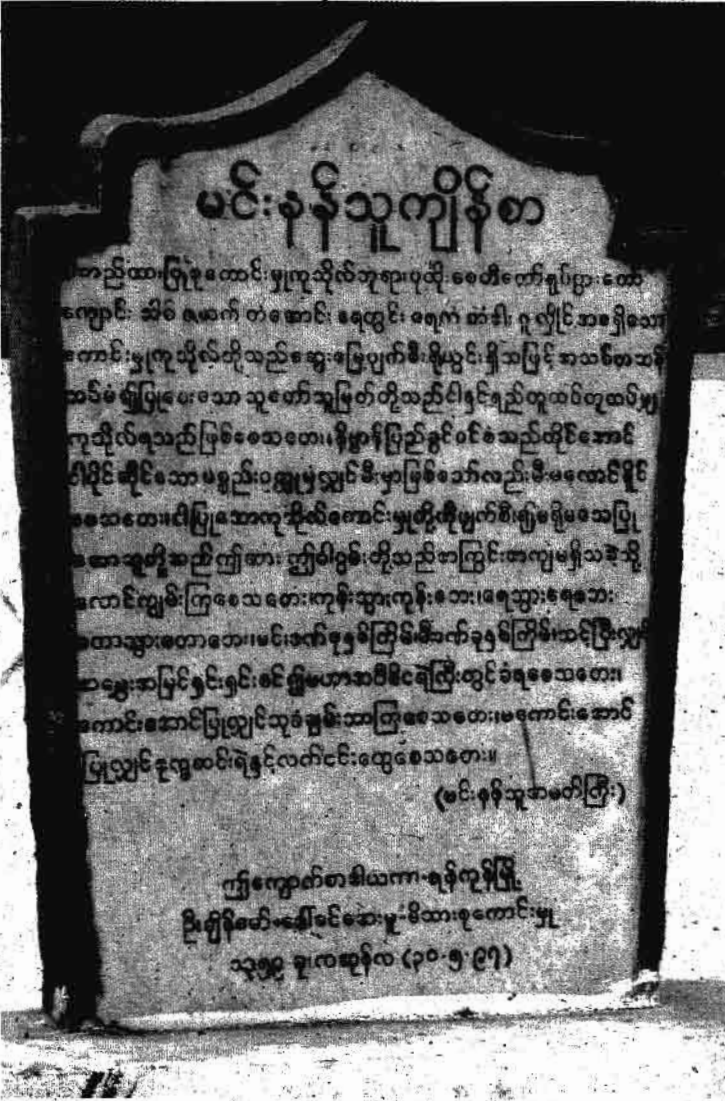 မင်းနန်သူကျိန်စာ
တည်ထားပြုစုကောင်းမှုကုသိုလ်ဘုရားပုထိုးစေတီတော်ရုပ်ပွားတော်
ကျောင်း အိမ် ဇရပ် တံဆောင်း ရေတွင်း ရေကန် တံခါး ဂူ လှိုင် အစရှိသော
ကောင်းမှုကုသိုလ်တို့သည်ဆွေးမြေ့ပျက်စီးယိုယွင်းရှိသဖြင့် အသစ်တဖန်
အမံ၍ပြုပေးသော သူတော်သူမြတ်တို့သည်ငါနှင့်ရည်တူထပ်တူထပ်မျှ
ကုသိုလ်ရသည်ဖြစ်စေသတေး။နိဗ္ဗာန်ပြည်ခွင်ဝင်စံသည်တိုင်အောင်
ငါပိုင်ဆိုင်သောပစ္စည်းဝတ္ထုမှလျှင်မီးမှာမြစ်သော်လည်းမီးမလောင်နိုင်
စေသတေး။ငါပြုသောကုသိုလ်ကောင်းမှုတို့ကိုဖျက်စီး၍မရှိမသေပြု
သောသူတို့သည်ဤဆား ဤဓါးပွမ်းတို့သည်အကြွင်းအကျမရှိသကဲ့သို့
လောင်ကျွမ်းကြစေသတေး။ကုန်းသွားကုန်းဘေး၊ရေသွားရေဘေး
တောသွားတောဘေး၊မင်းဒဏ်ခုနှစ်ကြိမ်မိုးဒဏ်ခုနှစ်ကြိမ်သင့်ပြီးလျှင်
အမွှေးအမြှင်နှင်းရှင်းစင်၍မဟာအဝီစိငရဲကြီးတွင်ခံရစေသတေး၊
ကောင်းအောင်ပြုလျှင်သုခချမ်းသာကြစေသတေး၊မကောင်းအောင်
ပြုလျှင်ဒုက္ခဆင်းရဲနှင့်လက်ငင်းတွေ့စေသတေး။
(မင်းနန်သူအမတ်ကြီး)
ဤကျောက်စာဒါယကာ-ရန်ကုန်မြို့
ဦးချိန်ဇော်-ဒေါ်ခင်ဆေးမူ-မိသားစုကောင်းမှု
၁၃၅၉ ခု၊ကဆုန်လ (၃၀-၅-၉၇)